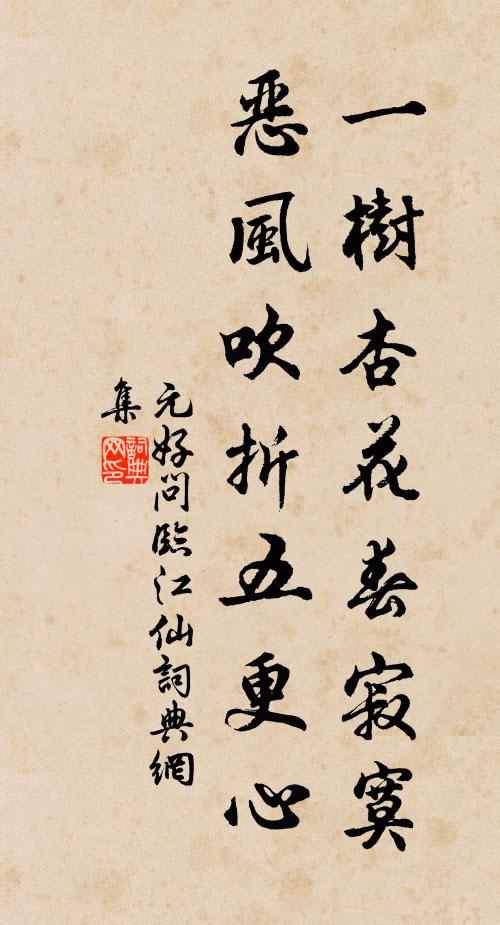 一樹杏花春寂寞
惡風吹折五更心
元好問臨江仙詞典網
集
詞典网印